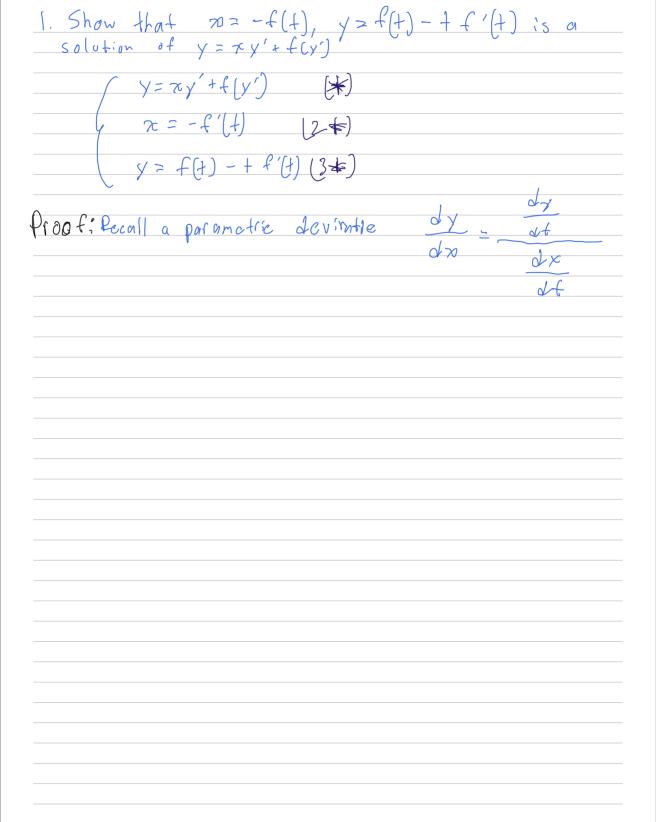 1. Show that x = -f(t), y = f(t) - t f'(t) is a
solution of y = xy' + f(y')
y = xy' + f(y') (*)
x = -f'(t) (2*)
y = f(t) - t f'(t) (3*)
Proof: Recall a parametric devirative dy/dx = (dy/dt)/(dx/dt)